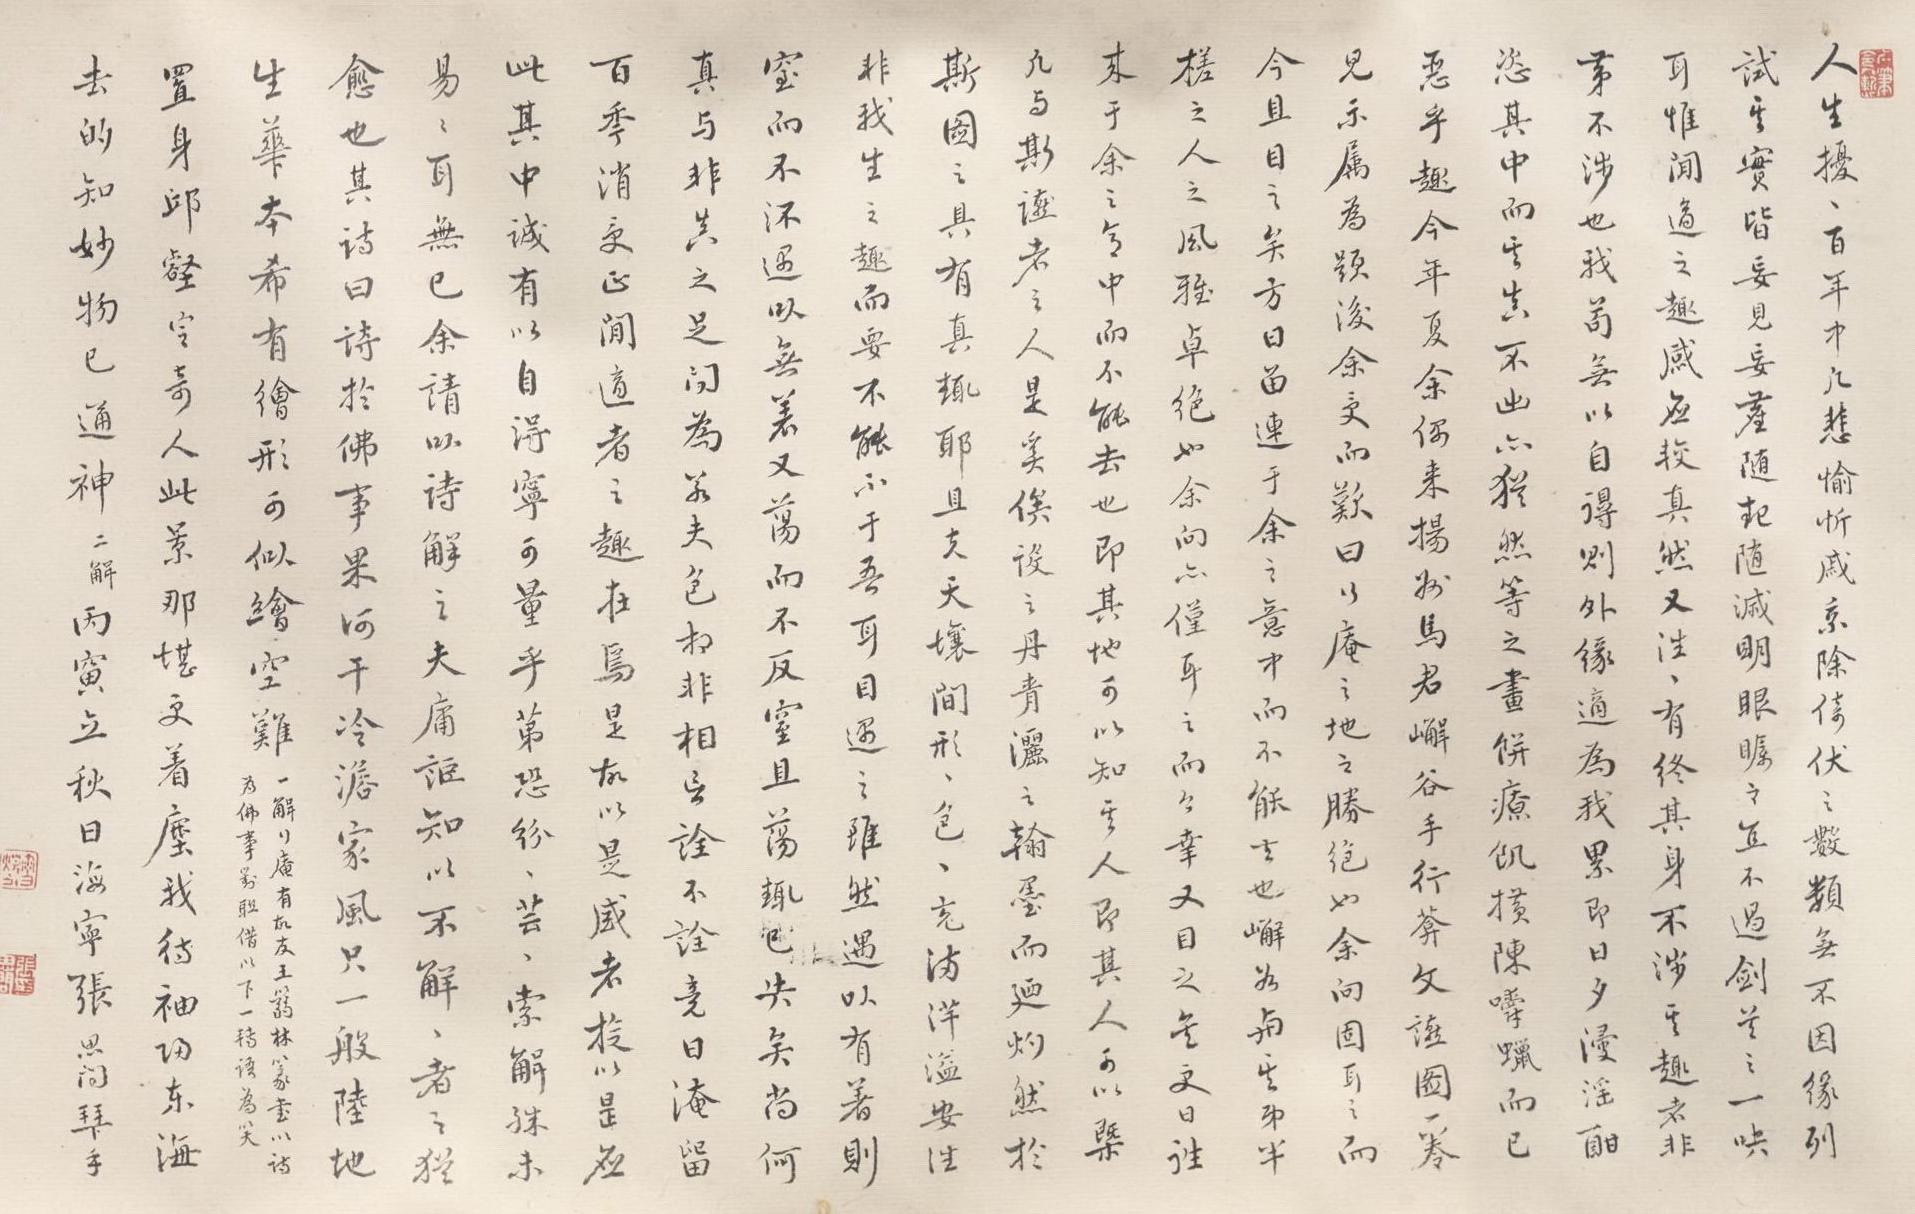 人生擾、百年中凡悲愉忻戚乘除倚伏之數類無不因緣列
試其實皆妄見妄廑隨起隨滅明眼矚之亘不過劍首之一吷
耳惟閒適之趣感應較真然又往、有終其身不涉其趣者非
第不涉也我苟無以自得則外緣適為我累即日夕漫淫酣
恣其中而其真不出亦猶然等之畫餅療飢橫陳嚼蠟而已
惡乎趣今年夏余偶来揚州馬君嶰谷手行葊文讌圖一卷
見示属為題後余受而歎曰行庵之地之勝絕也余向固耳之而
今且目之矣方日留連于余之意中而不能去也嶰谷與其弟半
槎之人之風雅卓絕也余向亦僅耳之而今幸又目之矣更日往
来于余之意中而不能去也即其地可以知其人即其人可以槩
凡与斯讌者之人是奚俟設之丹青灑之翰墨而廼灼然於
斯圖之具有真輒耶且夫天壤間形、色、充満洋溢安往
非我生之趣而要不能不于吾耳目遇之雖然遇以有著則
窒而不流遇以無着又蕩而不反窒且蕩輒已失矣尚何
真与非真之足问為若夫色相非相言詮不詮竟日淹留
百季消受正閒適者之趣在焉是故以是感者於以是應
此其中誠有以自得寧可量乎第恐紛、芸、索解殊未
易、耳無已余請以詩解之夫庸詎知以不解、者之猶
愈也其詩曰詩於佛事果何干冷澹家風只一般陸地
生華本希有繪形可似繪空難 一解行庵有故友王蒻林篆書以詩
為佛事對聯借以下一轉語為笑
置身邱壑盡奇人此景那堪更着塵我待袖歸东海
去的知妙物已通神 二解 丙寅立秋日海寧張思閎拜手